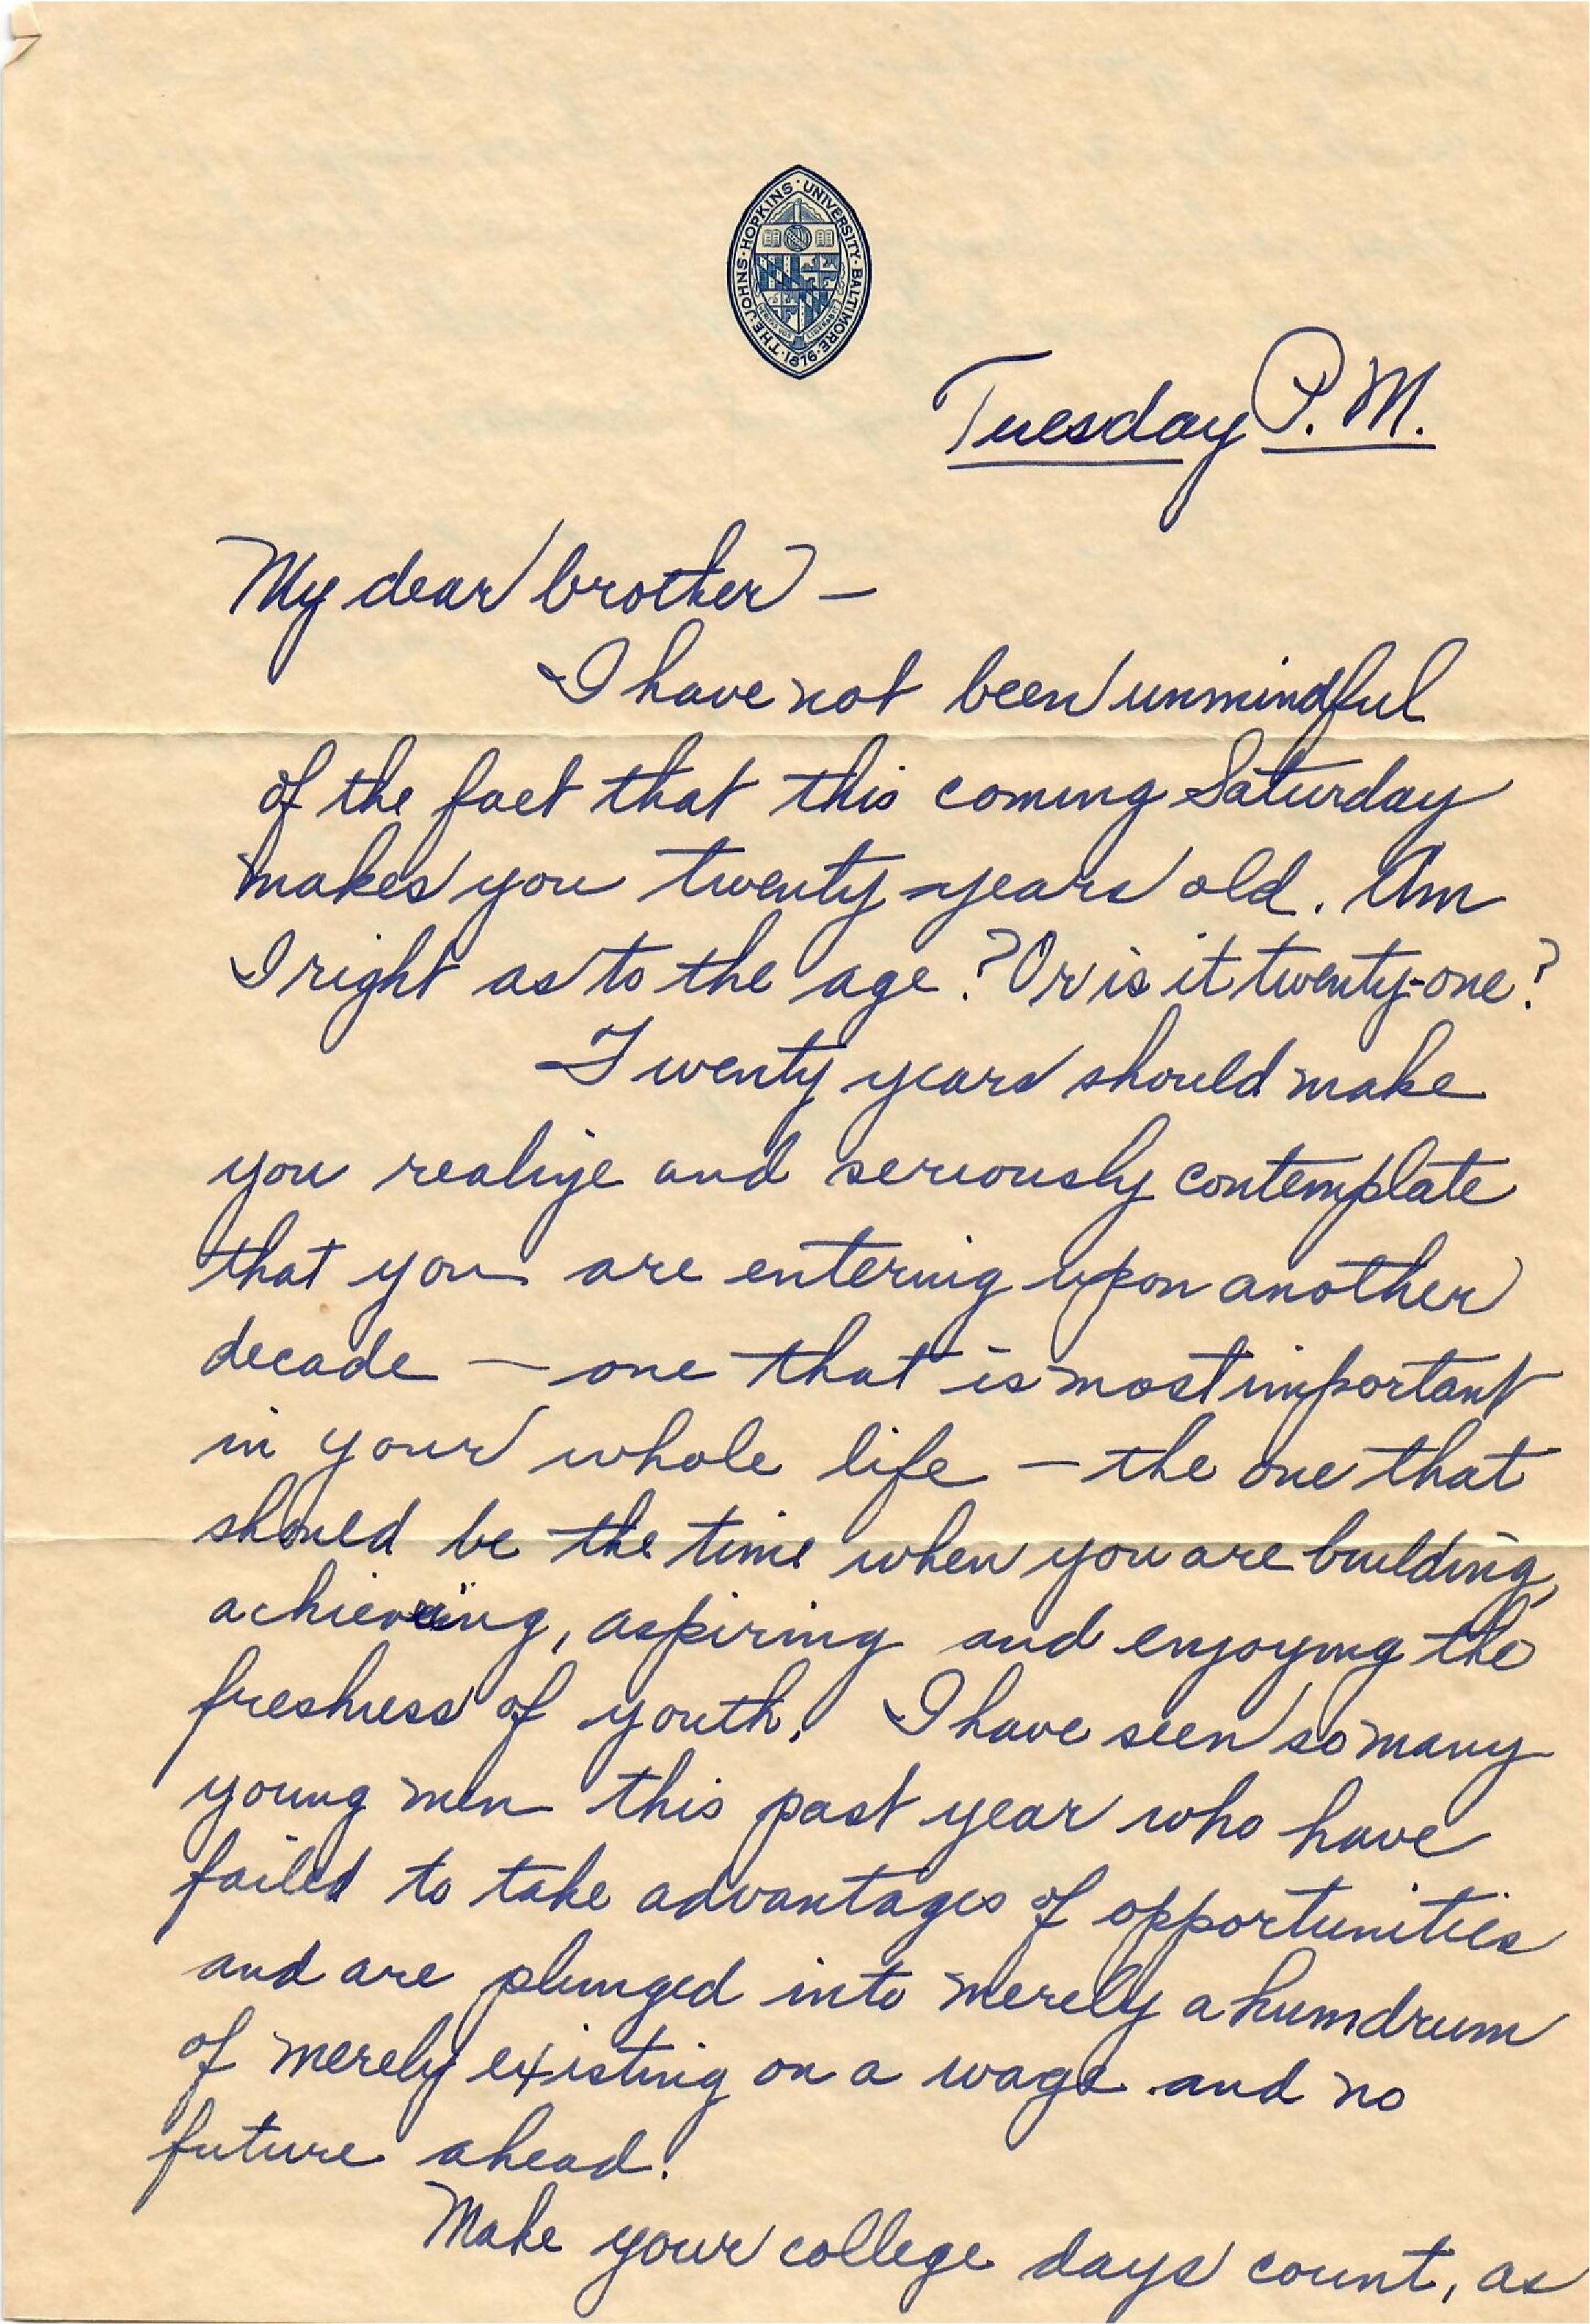 THE · JOHNS · HOPKINS · UNIVERSITY · BALTIMORE · 1876 ·
Tuesday P.M.
My dear brother —
I have not been unmindful
of the fact that this coming Saturday
makes you twenty years old. Am
I right as to the age? Or is it twenty-one?
Twenty years should make
you realize and seriously contemplate
that you are entering upon another
decade — one that is most important
in your whole life — the one that
should be the time when you are building,
achieving, aspiring and enjoying the
freshness of youth. I have seen so many
young men this past year who have
failed to take advantages of opportunities
and are plunged into merely a humdrum
of merely existing on a wage and no
future ahead.
Make your college days count, as